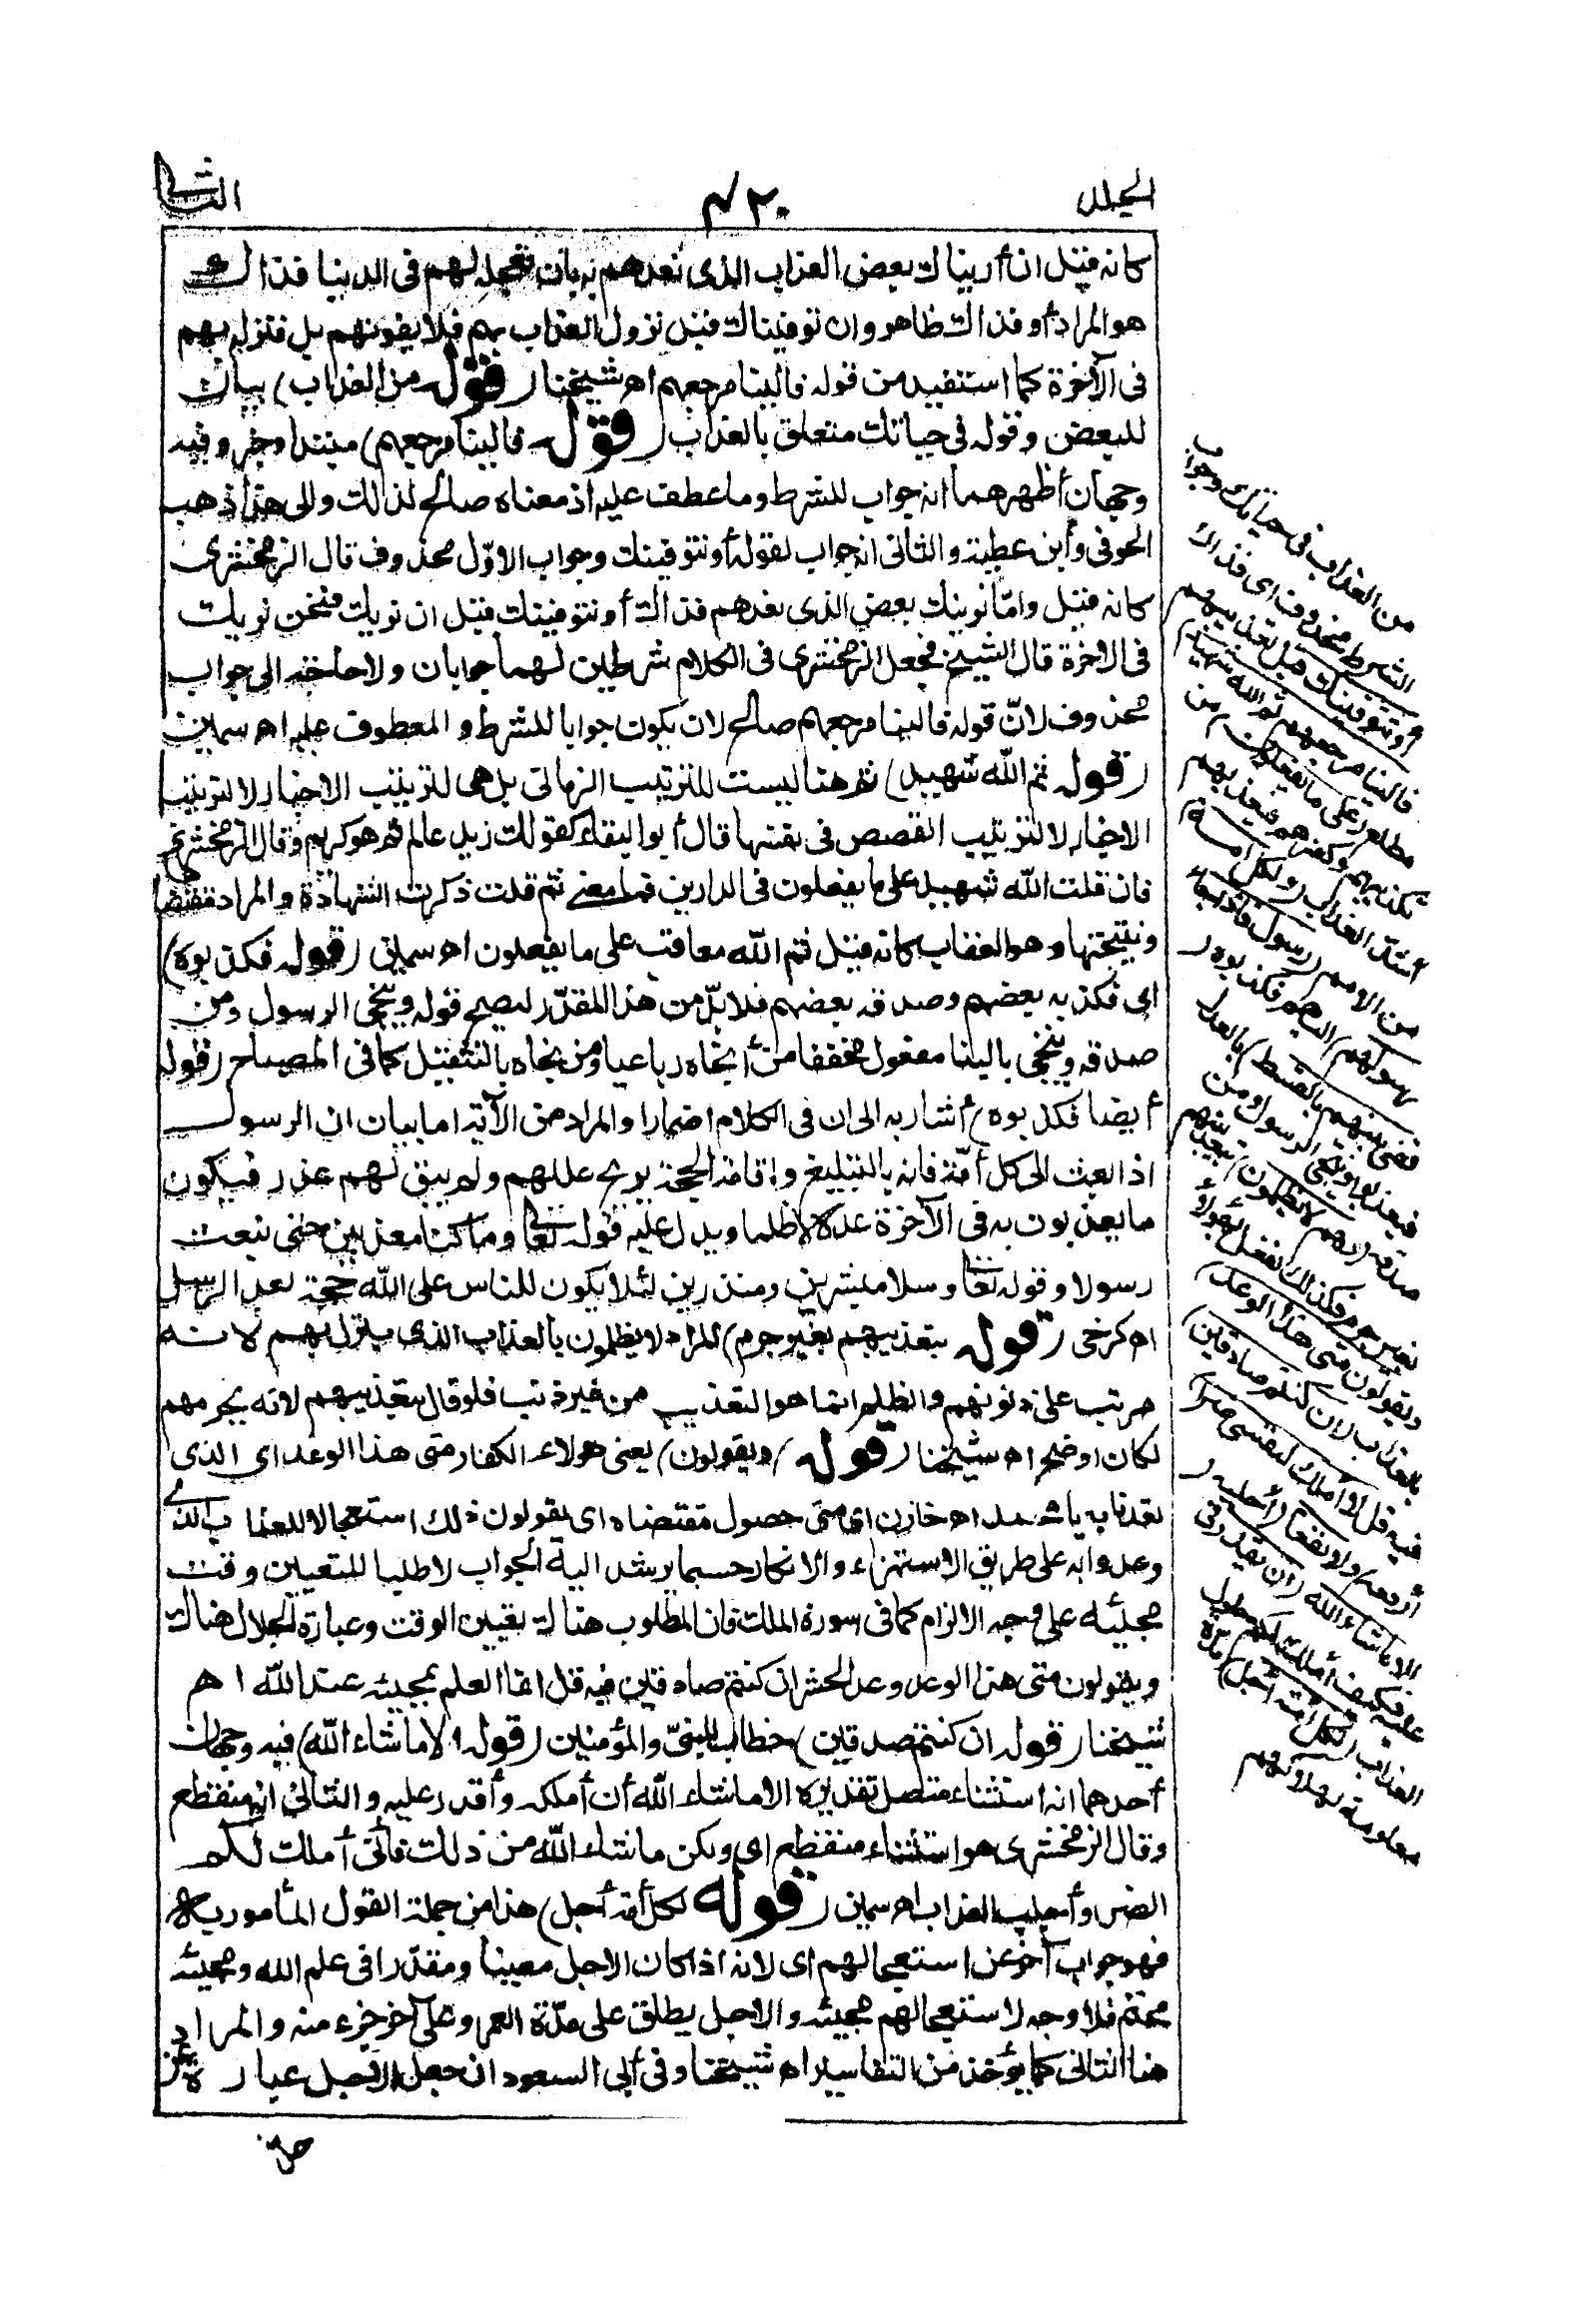 الجلد
٤٢٠
الثانى
كانه قيل ان أريناك بعض العذاب الذى نعدهم به بان نعجله لهم فى الدنيا فذاك
هو المراد أو فذاك ظاهر وان توفيناك قبل نزول العذاب بهم فلا يفوتهم بل ننزله بهم
فى الآخرة كما استفيد من قوله فالينا مرجعهم اه شيخنا (قوله من العذاب) بيان
للبعض وقوله فى حياتك متعلق بالعذاب (قوله فالينا مرجعهم) مبتدا وخبر وفيه
وجهان أظهرهما انه جواب للشرط وما عطف عليه اذ معناه صالح لذلك والى هذا ذهب
الحوفى وأبن عطية والثانى انه جواب لقوله أو نتوفينك وجواب الاوّل محذوف قال الزمخشرى
كانه قيل واما نرينك بعض الذى نعدهم فذاك أو نتوفينك قبل ان نريك فنحن نريك
فى الاخرة قال الشيخ فجعل الزمخشرى فى الكلام شرطين لهما جوابان ولا حاجة الى جواب
محذوف لانّ قوله فالينا مرجعهم صالح لان يكون جوابا للشرط و المعطوف عليه اه سمين
(قوله ثم الله شهيد) ثم هنا ليست للترتيب الزمانى بل هى لترتيب الاخبار لا لترتيب
الاخبار لا لترتيب القصص فى نفسها قال أبو البقاء كقولك زيد عالم ثم هو كريم وقال الزمخشرى
فان قلت الله شهيد على ما يفعلون فى الدارين فما معنى ثم قلت ذكرت الشهادة و المراد مقتضاها
ونتيجتها وهو العقاب كانه قيل ثم الله معاقب على ما يفعلون اه سمين (قوله فكذبوه)
اى فكذبه بعضهم وصدقه بعضهم فلا بدّ من هذا المقدّر ليصح قوله وينجى الرسول ومن
صدقه وينجى بالبنا مفعول مخففا من أنجاه رباعيا ومن نجاه بالتثقيل كما فى المصباح (قوله
أيضا فكذبوه) أشار به الى ان فى الكلام اضمارا والمراد من الآية اما بيان ان الرسول
اذا بعث الى كل أمّة فانه بالتبليغ واقامة الحجة يزيح عللهم ولم يبق لهم عذر فيكون
ما يعذبون به فى الآخرة عدلا لا ظلما ويدل عليه قوله تعا وما كنا معذبين حتى نبعث
رسولا وقوله تعا رسلا مبشرين ومنذرين لئلا يكون للناس على الله حجة بعد الرسل
اه كرخى (قوله بتعذيبهم بغير جرم) المراد لا يظلمون بالعذاب الذى ينزل بهم لانه
مرتب على ذنوبهم والظلم انما هو التعذيب من غير ذنب فلو قال بتعذيبهم لانه بجرمهم
لكان اوضح اه شيخنا (قوله ويقولون) يعنى هولاء الكفار متى هذا الوعد اى الذى
تعدنا به يا محمد اه خازن اى متى حصول مقتضاه اى يقولون ذلك استعجالا للعذاب الذى
وعدوا به على طريق الاستهزاء والانكار حسبما يرشد اليه الجواب لا طلبا لتعيين وقت
مجيئه على وجه الالزام كما فى سورة الملك فان المطلوب هناك تعيين الوقت وعبارة الجلال هناك
ويقولون متى هذا الوعد وعد الحشر ان كنتم صادقين فيه قل انما العلم بمجيئه عند الله اه
شيخنا (قوله ان كنتم صدقين) خطاب للنبىّ والمؤمنين (قوله الا ما شاء الله) فيه وجهان
أحدهما انه استثناء متصل تقديره الا ما شاء الله أن أملكه وأقدر عليه والثانى انه منقطع
وقال الزمخشرى هو استثناء منقطع اى ولكن ما شاء الله من ذلك فأنى أملك لكم
الضر وأجلب العذاب اه سمين (قوله لكل أمة أجل) هذا من جملة القول المأمور به
فهو جواب آخر عن استعجالهم اى لانه اذا كان الاجل معينا ومقدّرا فى علم الله ومجيئه
محتم فلا وجه لاستعجالهم مجيئه والاجل يطلق على مدّة العمر وعلى آخر جزء منه والمراد
هنا الثانى كما يؤخذ من التفاسير اه شيخنا وفى أبى السعود ان جعل الاجل عبارة عن
من العذاب فى حياتك وجواب
الشرط محذوف اى فذاك
أو نتوفينك قبل تعذيبهم
فالينا مرجعهم ثم الله شهيد
مطلع على ما يفعلون من
تكذيبهم وكفرهم فيعذبهم
أشدّ العذاب ولكل امة
من الامم رسول فاذا جاء
رسولهم اليهم فكذبوه
قضى بينهم بالقسط بالعدل
فيعذبوا وينجى الرسول ومن
صدقه وهم لا يظلمون بتعذيبهم
بغير جرم فكذلك نفعل بهؤلاء
ويقولون متى هذا الوعد
بالعذاب ان كنتم صادقين
فيه قل لا أملك لنفسى ضرا
أدفعه ولا نفعا أجلبه
الا ما شاء الله ان يقدرنى
عليه فكيف أملك لكم حلول
العذاب لكل أمة أجل مدّة
معلومة لهلاكهم